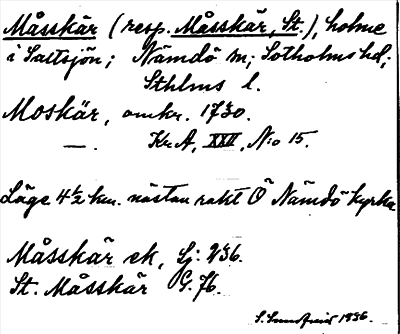 Måsskär (resp. Måsskär, St.), holme
i Saltsjön; Nämdö sn; Sotholms hd;
Sthlms l.
Moskär, omkr. 1730.
—. Kr A, XXII, N:o 15.
Läge 4 1/2 km. nästan rakt Ö Nämdö kyrka
Måsskär ek,
St. Måsskär G. 76.
1936.